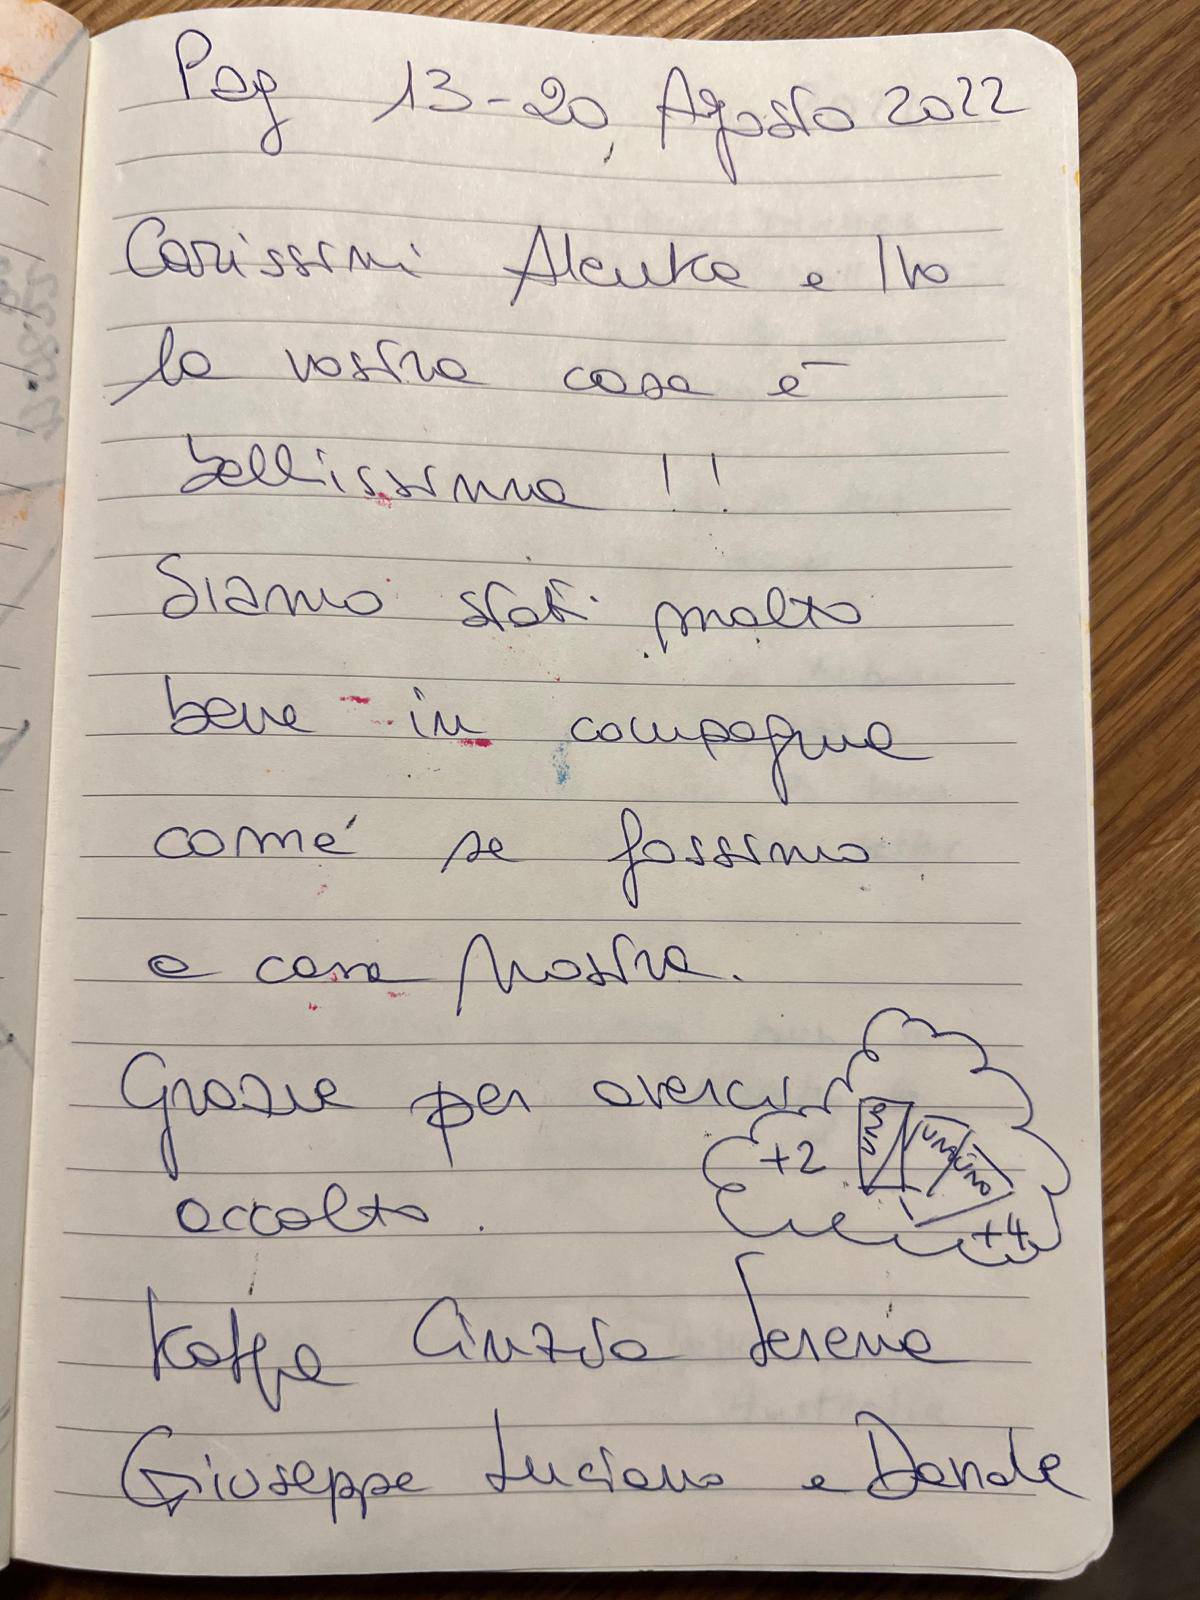 Pag 13-20 Agosto 2022
Carissimi Alenka e Ivo
la vostra casa è
bellissima !!
Siamo stati molto
bene in compagnia
come se fossimo
a casa nostra.
Grazie per averci
accolto.
+2 UNO UNO UNO
+4
Cinzia Serena
Giuseppe Luciano e Davide